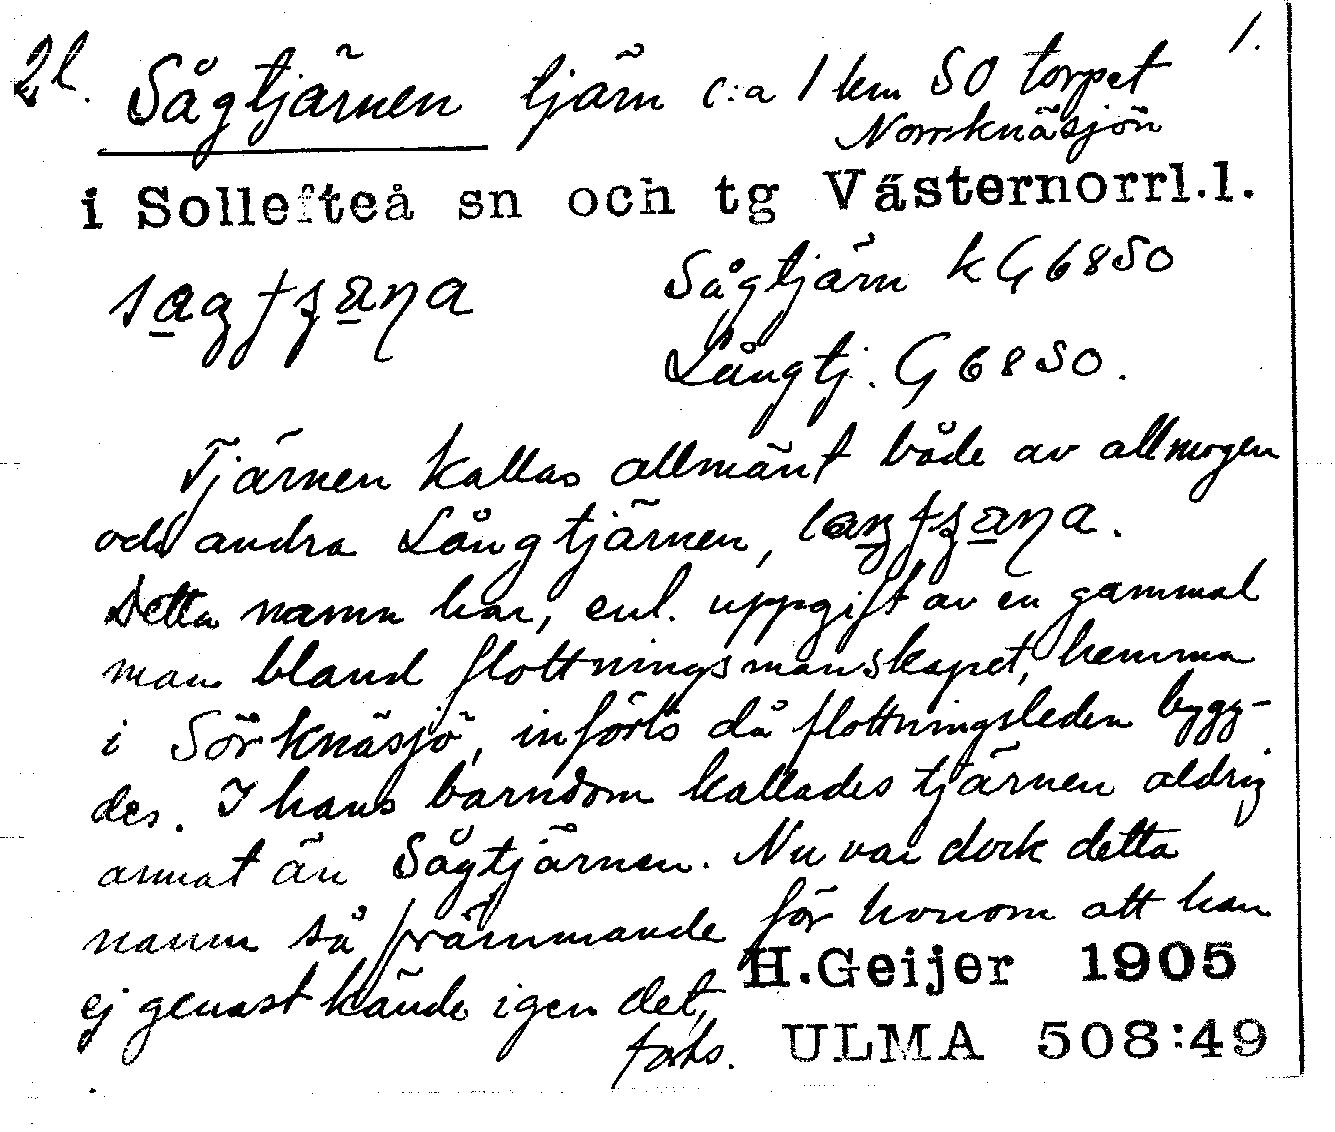 2l. Sågtjärnen tjärn c:a 1 km SO torpet 1.
Norrknäsjön
i Sollefteå sn och tg Västernorrl.l.
Sågtjärn k G68SO
Långtj. G68SO.
Tjärnen kallas allmänt både av allmogen
och andra Långtjärnen,
Detta namn har, enl. uppgift av en gammal
man bland flottningsmanskapet, hemma
i Sörknäsjö, införts då flottningsleden bygg-
des. I hans barndom kallades tjärnen aldrig
annat än Sågtjärnen. Nu var dock detta
namn så främmande för honom att han
ej genast kände igen det,
H.Geijer 1905
forts.
ULMA 508:49